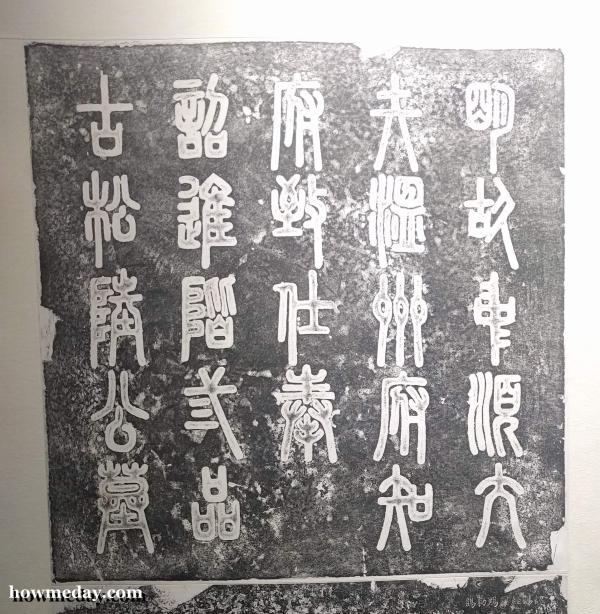 明故中順大
夫溫州府知
府致仕奉
詔進階弎品
古松陸公墓
howmeday.com